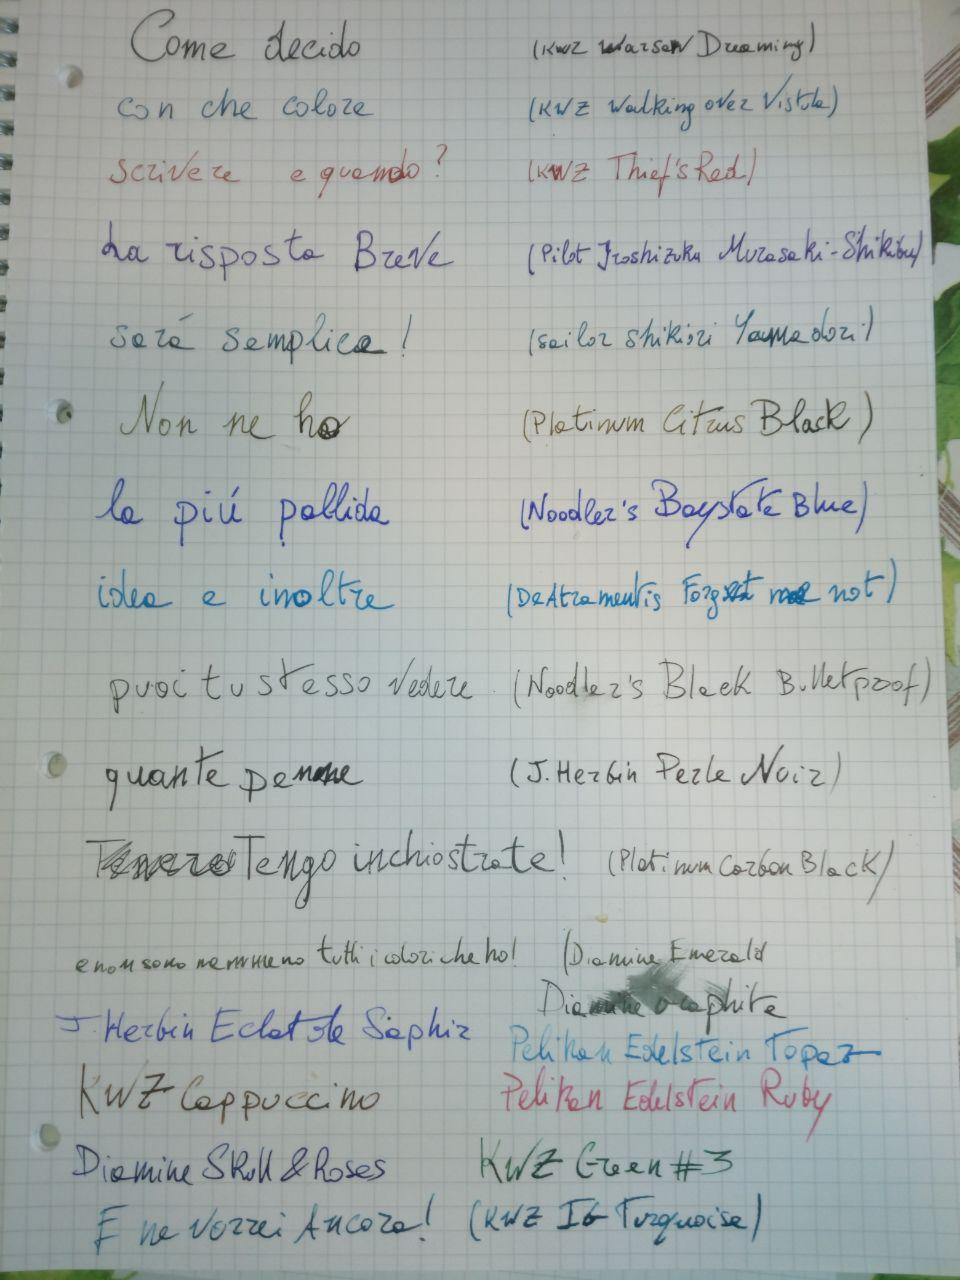 Come decido (KWZ Warsaw Dreaming)
con che colore (KWZ Walking over Vistula)
scrivere e quando? (KWZ Thief's Red)
La risposta Breve (Pilot Iroshizuku Murasaki-Shikibu)
sará semplice! (Sailor Shikiori Yamadori)
Non ne ho (Platinum Citrus Black)
la piú pallida (Noodler's Baystate Blue)
idea e inoltre (DeAtramentis Forget me not)
puoi tu stesso vedere (Noodler's Black Bulletproof)
quante penne (J. Herbin Perle Noir)
Tengo inchiostrate! (Platinum Carbon Black)
e non sono nemmeno tutti i colori che ho! (Diamine Emerald
Diamine Graphite
J. Herbin Eclat de Saphir
Pelikan Edelstein Topaz
KWZ Cappuccino Pelikan Edelstein Ruby
Diamine Skull & Roses KWZ Green #3
E ne vorrei Ancora! (KWZ IG Turquoise)